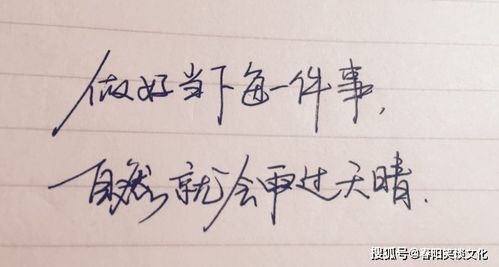 做好当下每一件事，
自然就会雨过天晴.
搜狐号@春阳笑谈文化